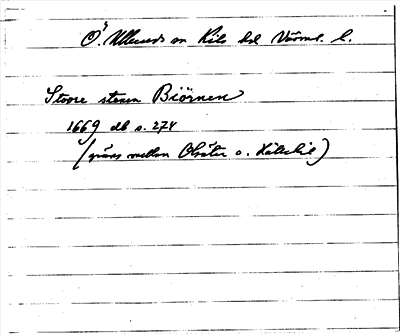 Ö. Ullerud sn Kils hd Värml. l.
Stoore stenen Biörnen
1669 db s. 274
(gräns mellan Olsäter o. Hällekil)